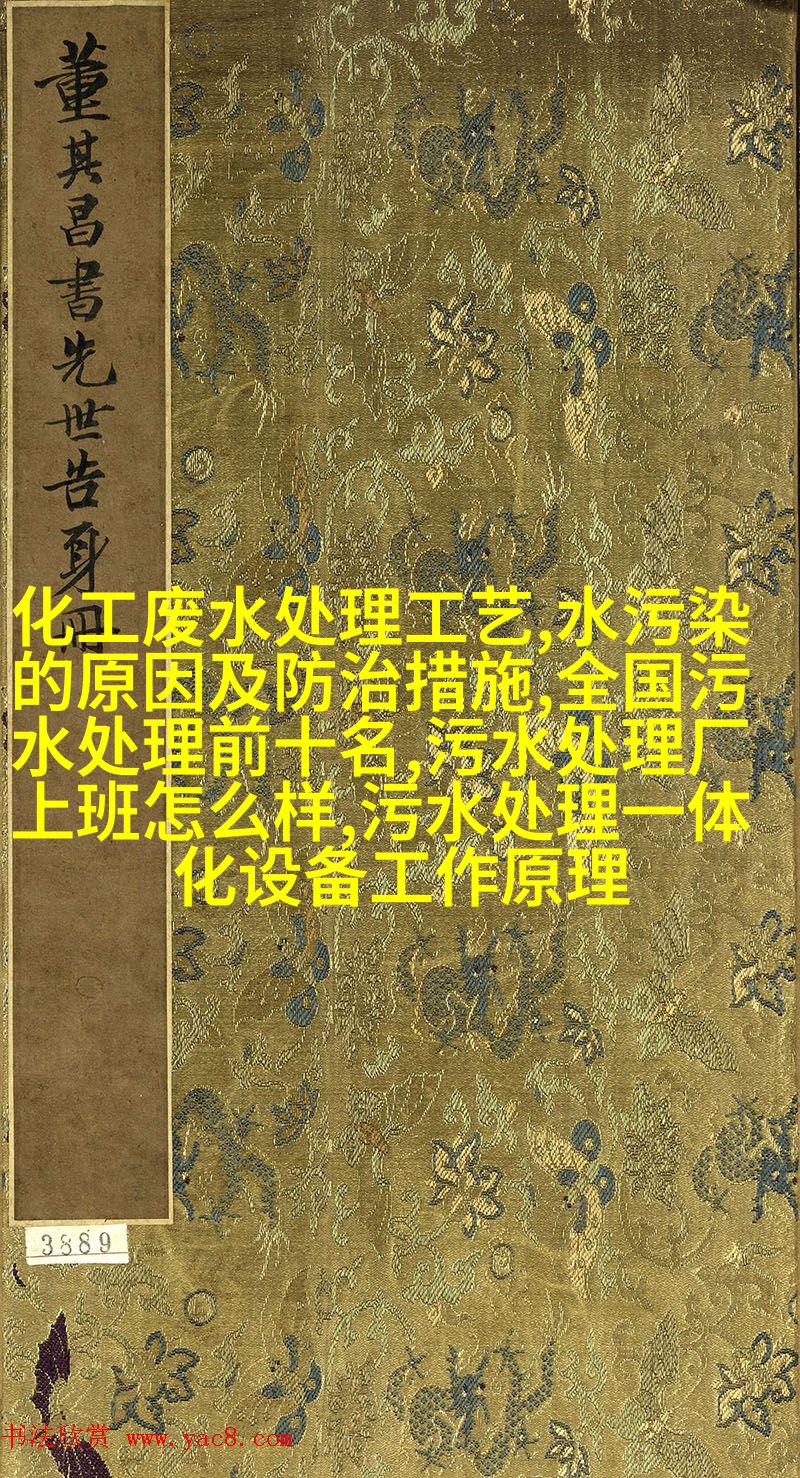 董其昌書先世告身冊
化工废水处理工艺,水污染
的原因及防治措施,全国污
水处理前十名,污水处理厂
上班怎么样,污水处理一体
化设备工作原理
3889
书法欣赏 www.yac8.com